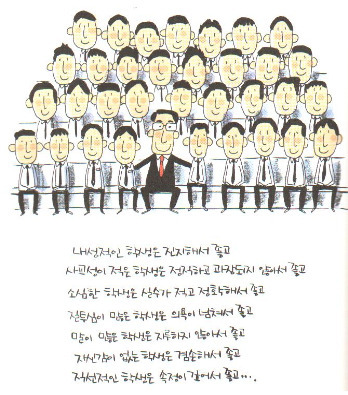 내성적인 학생은 진지해서 좋고
사교성이 적은 학생은 정직하고 과장되지 않아서 좋고
소심한 학생은 실수가 적고 정확해서 좋고
질투심이 많은 학생은 의욕이 넘쳐서 좋고
말이 많은 학생은 지루하지 않아서 좋고
자신감이 없는 학생은 겸손해서 좋고
직선적인 학생은 속정이 깊어서 좋고...